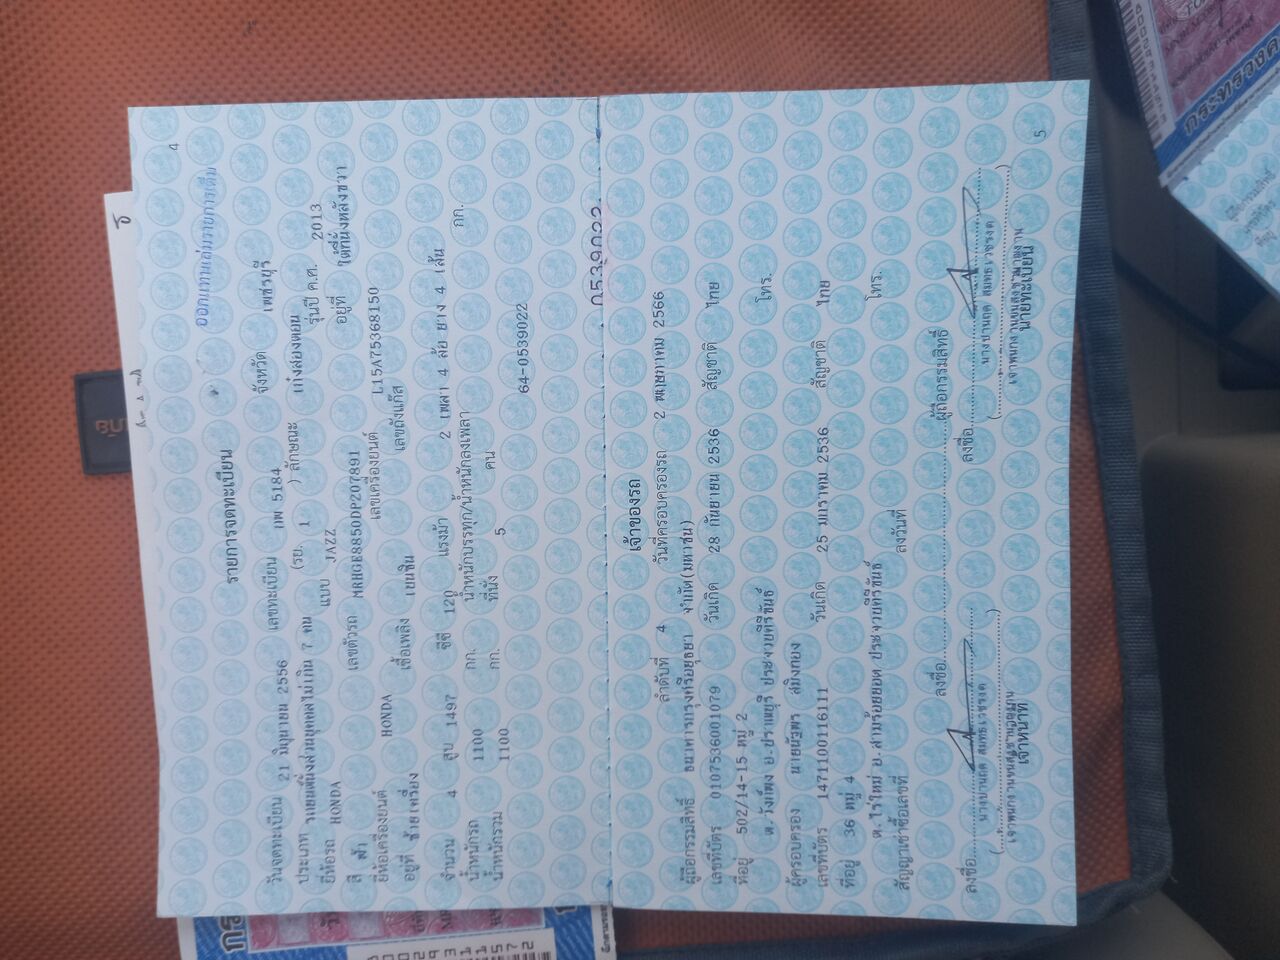 4
ออกแทนเล่มรายการเดิม
รายการจดทะเบียน
วันจดทะเบียน 21 มิถุนายน 2556 เลขทะเบียน กพ 5184 จังหวัด เพชรบุรี
ประเภท รถยนต์นั่งส่วนบุคคลไม่เกิน 7 คน (รย. 1 ) ลักษณะ เก๋งสองตอน
ยี่ห้อรถ HONDA แบบ JAZZ รุ่นปี ค.ศ. 2013
สี ฟ้า เลขตัวรถ MRHGE8850DP207891 อยู่ที่ ใต้ที่นั่งหลังขวา
ยี่ห้อเครื่องยนต์ HONDA เลขเครื่องยนต์ L15A75368150
อยู่ที่ ซ้ายเครื่อง เชื้อเพลิง เบนซิน เลขถังแก๊ส
จำนวน 4 สูบ 1497 ซีซี 120 แรงม้า 2 เพลา 4 ล้อ ยาง 4 เส้น
น้ำหนักรถ 1100 กก. น้ำหนักบรรทุก/น้ำหนักลงเพลา กก.
น้ำหนักรวม 1100 กก. ที่นั่ง 5 คน
64-0539022
0539022
เจ้าของรถ
ลำดับที่ 4 วันที่ครอบครองรถ 2 พฤษภาคม 2566
ผู้ถือกรรมสิทธิ์ ธนาคารกรุงศรีอยุธยา จำกัด(มหาชน)
เลขที่บัตร 0107536001079 วันเกิด 28 กันยายน 2536 สัญชาติ ไทย
ที่อยู่ 502/14-15 หมู่ 2
ต.วังก์พง อ.ปราณบุรี ประจวบคีรีขันธ์ โทร.
ผู้ครอบครอง นายณัฐพร สมิงทอง
เลขที่บัตร 1471100116111 วันเกิด 25 มกราคม 2536 สัญชาติ ไทย
ที่อยู่ 36 หมู่ 4
ต.ไร่ใหม่ อ.สามร้อยยอด ประจวบคีรีขันธ์ โทร.
สัญญาเช่าซื้อเลขที่ ลงวันที่
ลงชื่อ ผู้ถือกรรมสิทธิ์
ลงชื่อ ลงชื่อ
เจ้าหน้าที่ นายทะเบียน
5